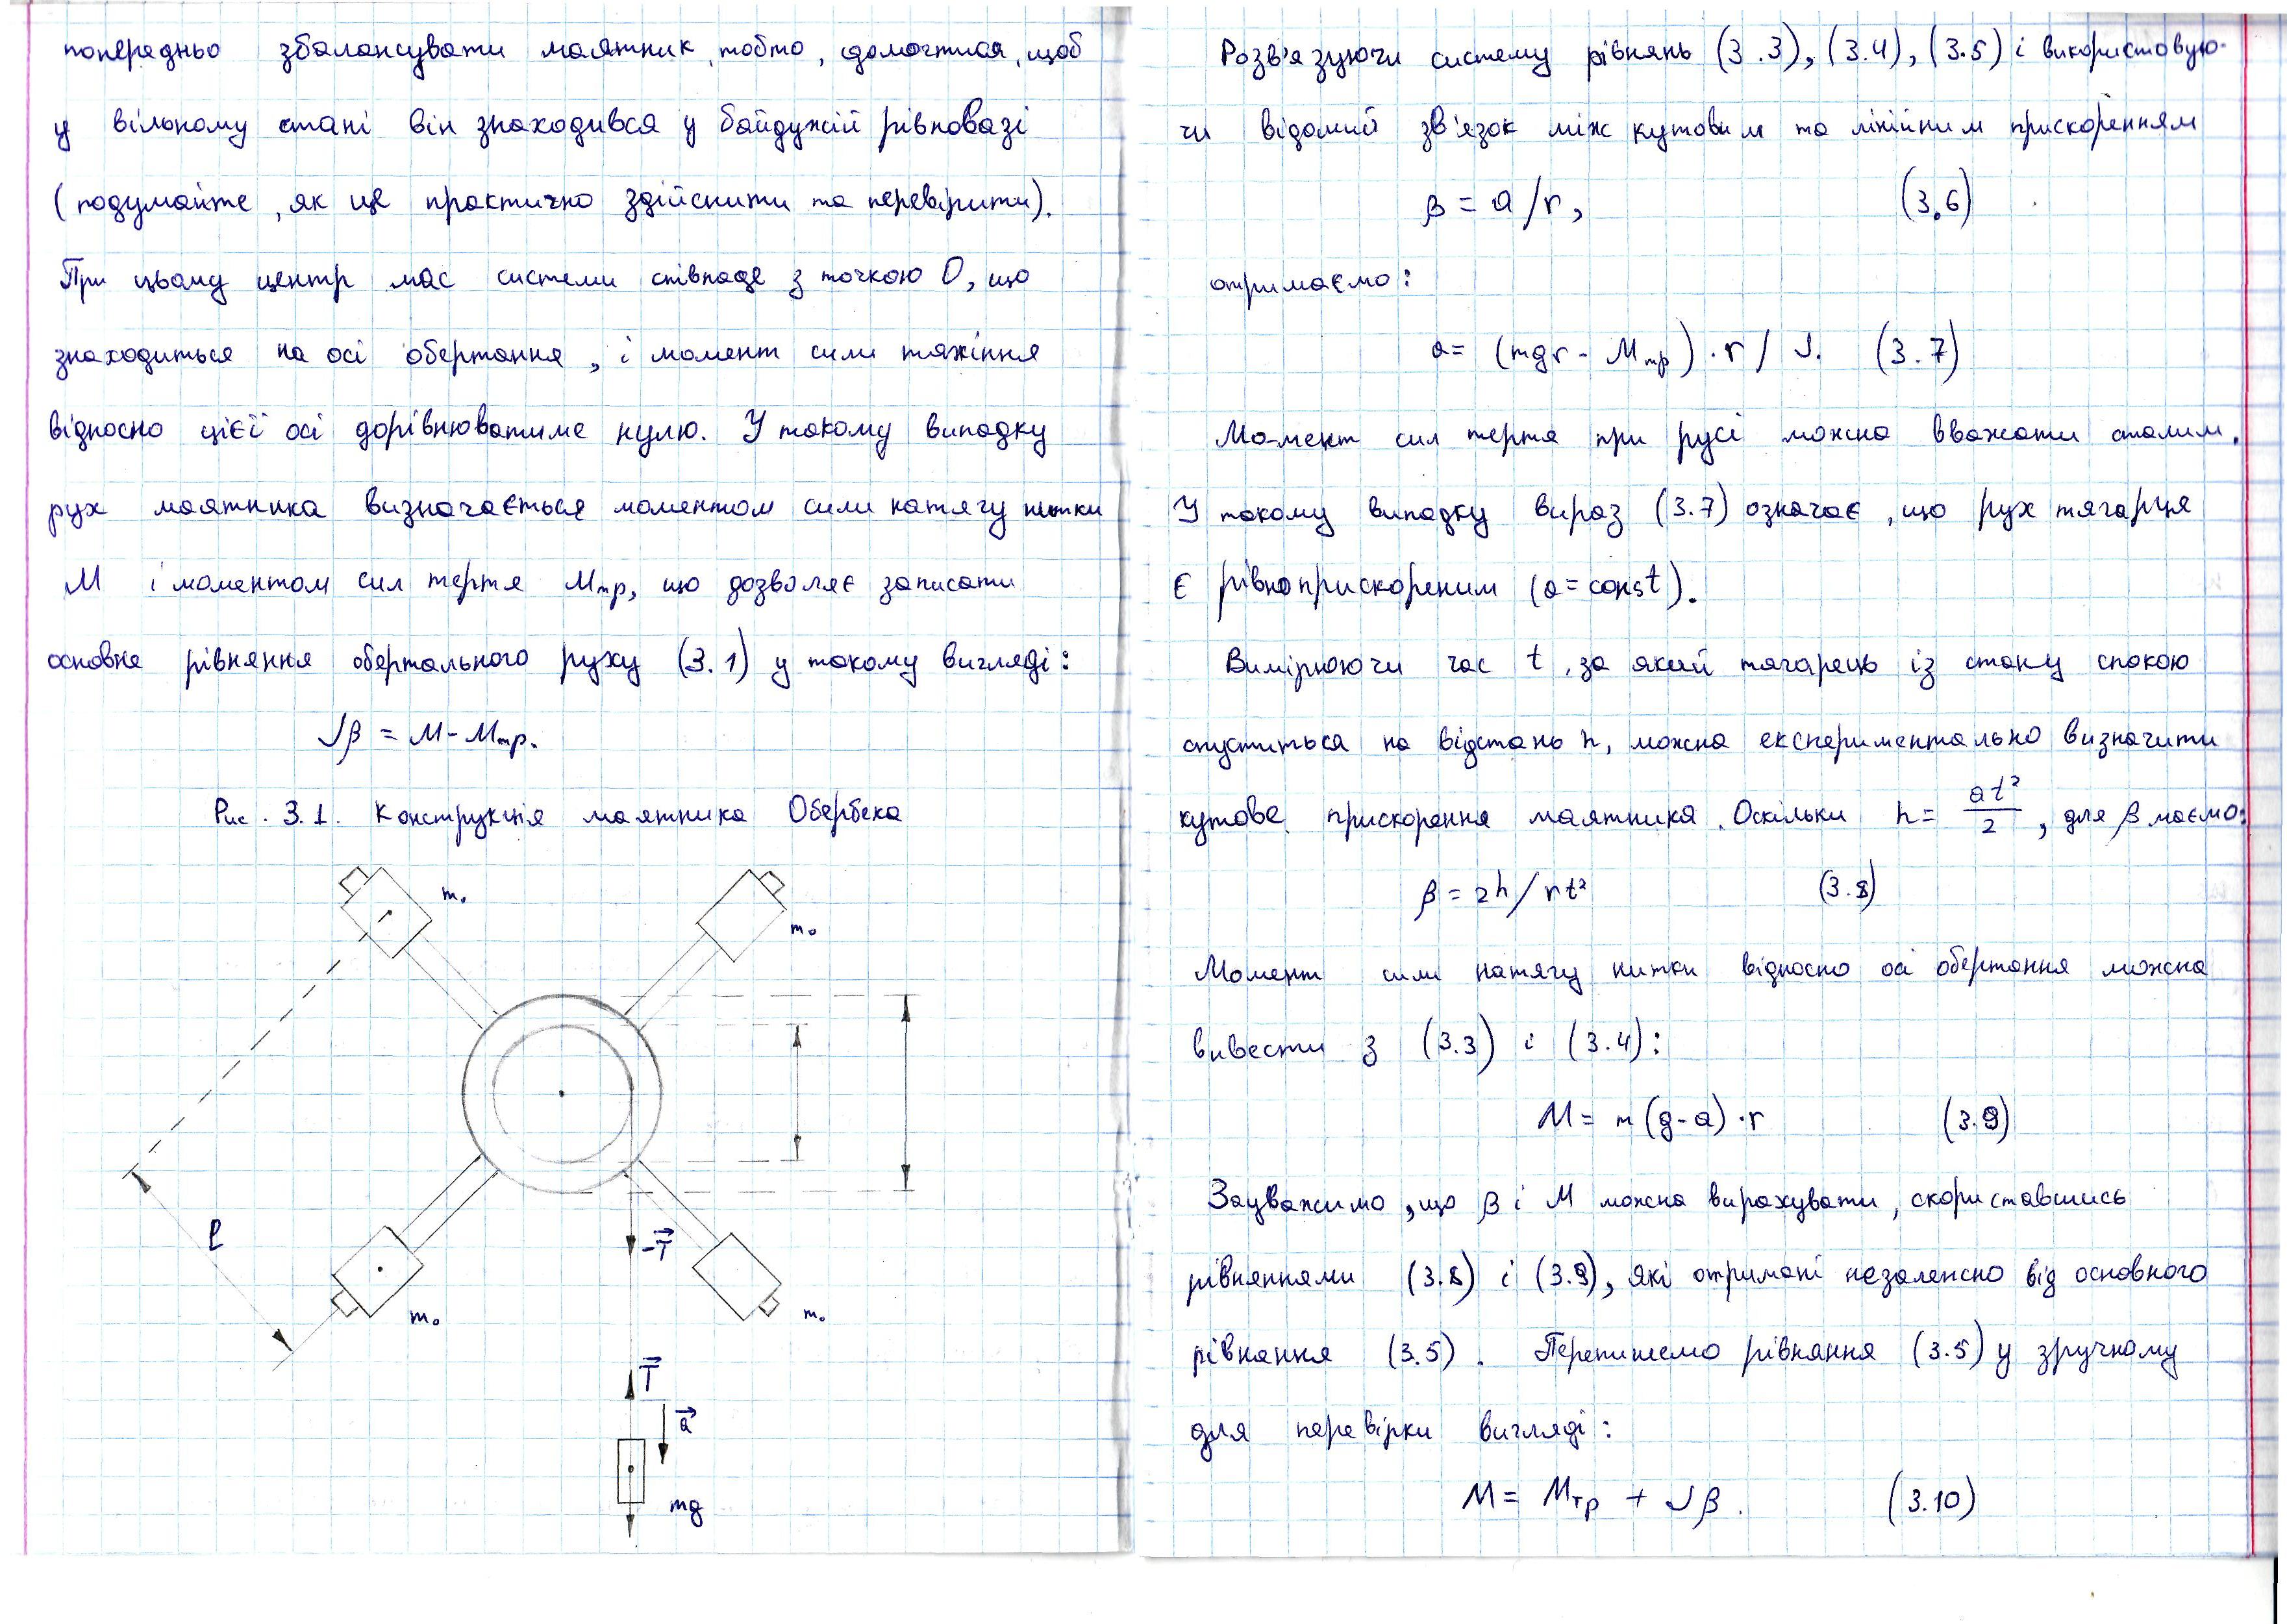 попередньо збалансувати маятник, тобто, домогтися, щоб
у вільному стані він знаходився у байдужій рівновазі
(подумайте, як це практично здійснити та перевірити).
При цьому центр мас системи співпаде з точкою О, що
знаходиться на осі обертання, і момент сили тяжіння
відносно цієї осі дорівнюватиме нулю. У такому випадку
рух маятника визначається моментом сили натягу нитки
M і моментом сил тертя Mтр, що дозволяє записати
основне рівняння обертального руху (3.1) у такому вигляді:
Jβ = M - Mтр.
Рис. 3.1. Конструкція маятника Обербека
m₀
m₀
l
-T⃗
m₀
m₀
T⃗
a⃗
mg
Розв'язуючи систему рівнянь (3.3), (3.4), (3.5) і використовую-
чи відомий зв'язок між кутовим та лінійним прискоренням
β = a/r, (3.6)
отримаємо:
a = (mgr - Mтр)·r / J. (3.7)
Момент сил тертя при русі можна вважати сталим.
У такому випадку вираз (3.7) означає, що рух тягарця
є рівноприскореним (a = const).
Вимірюючи час t, за який тягарець із стану спокою
спуститься на відстань h, можна експериментально визначити
кутове прискорення маятника. Оскільки h = at²/2, для β маємо:
β = 2h/rt² (3.8)
Момент сили натягу нитки відносно осі обертання можна
вивести з (3.3) і (3.4):
M = m(g-a)·r (3.9)
Зауважимо, що β і M можна вирахувати, скориставшись
рівняннями (3.8) і (3.9), які отримані незалежно від основного
рівняння (3.5). Перепишемо рівняння (3.5) у зручному
для перевірки вигляді:
M = Mтр + Jβ. (3.10)